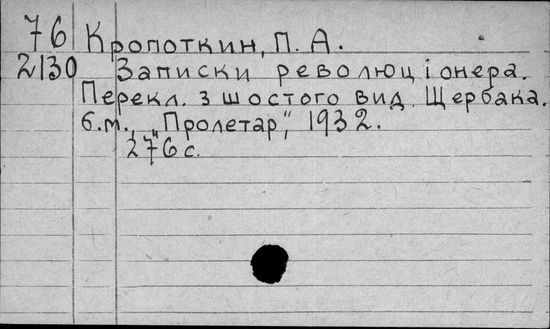 76 Кропоткин, П. А.
2130 Записки революціонера.
Перекл. з шостого вид. Щербака.
б.м., "Пролетар", 1932.
276 с.